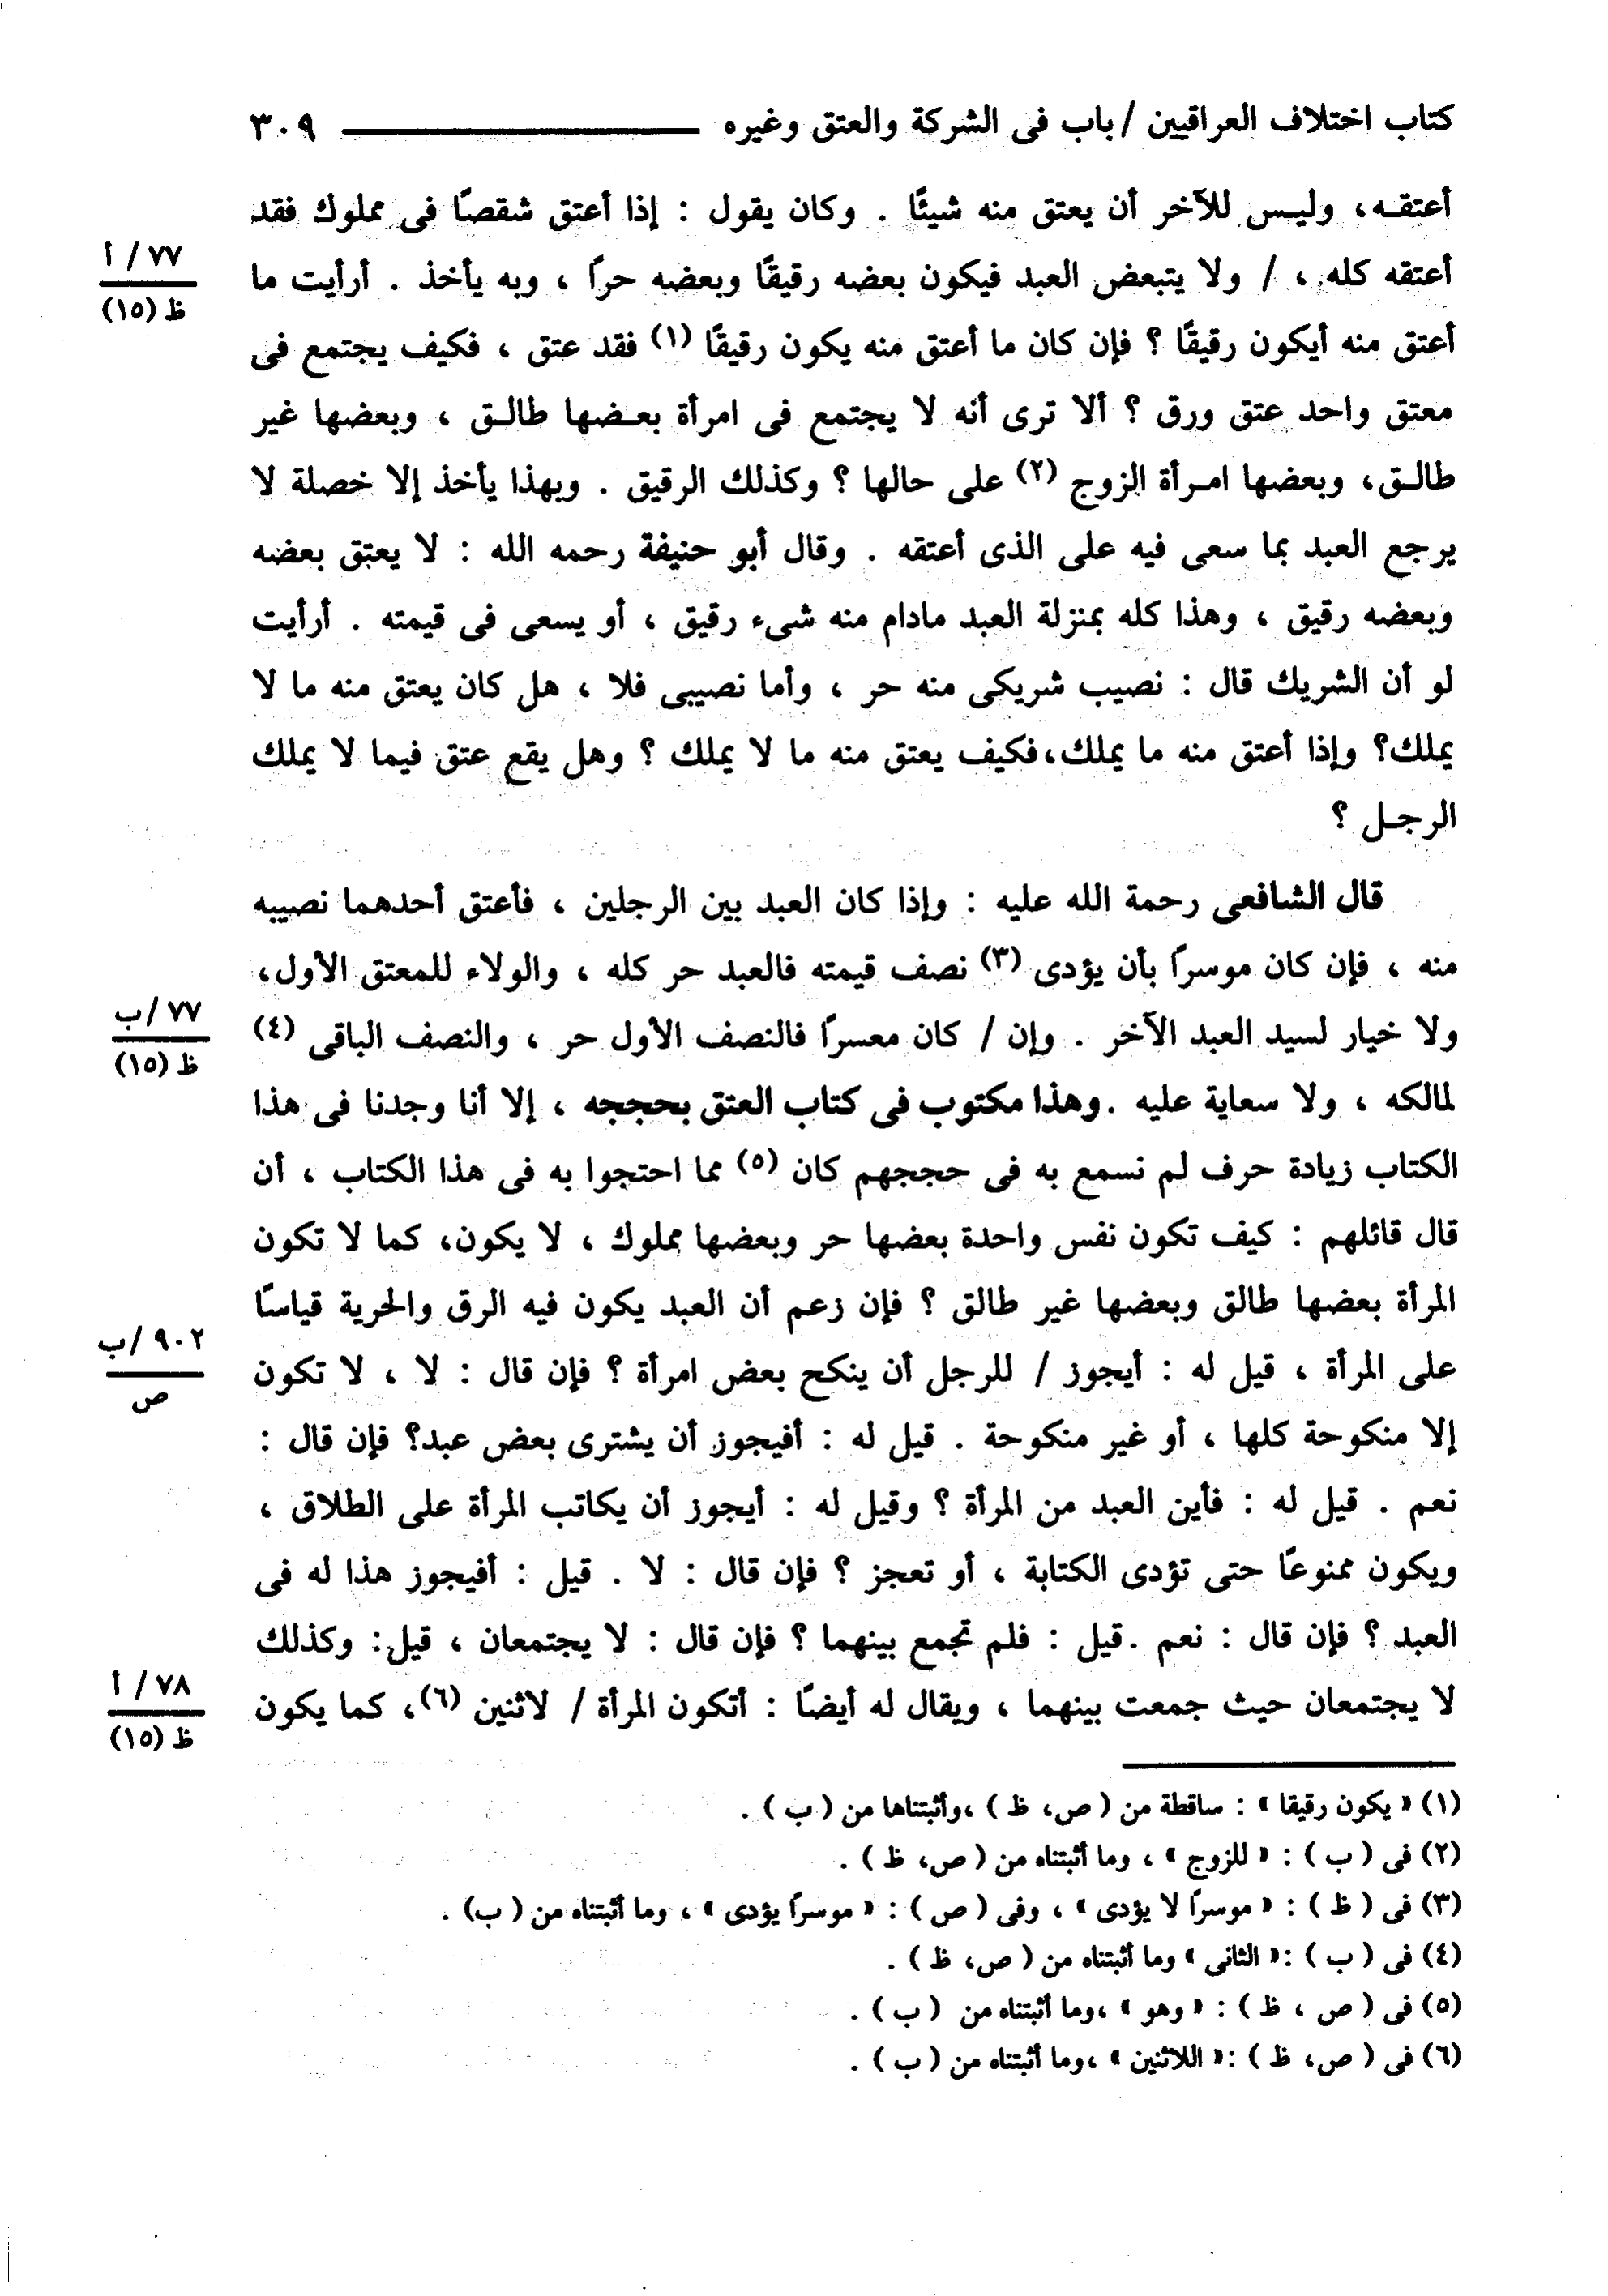 كتاب اختلاف العراقيين / باب فى الشركة والعتق وغيره ٣٠٩
أعتقـه، وليـس للآخر أن يعتق منه شيئًا . وكان يقول : إذا أعتق شقصًا فى مملوك فقد
أعتقه كله ، / ولا يتبعض العبد فيكون بعضه رقيقًا وبعضه حرًا ، وبه يأخذ . أرأيت ما
٧٧/ أ
ظ (١٥)
أعتق منه أيكون رقيقًا ؟ فإن كان ما أعتق منه يكون رقيقًا (١) فقد عتق ، فكيف يجتمع فى
معتق واحد عتق ورق ؟ ألا ترى أنه لا يجتمع فى امرأة بعـضها طالـق ، وبعضها غير
طالـق، وبعضها امـرأة الزوج (٢) على حالها ؟ وكذلك الرقيق . وبهذا يأخذ إلا خصلة لا
يرجع العبد بما سعى فيه على الذى أعتقه . وقال أبو حنيفة رحمه الله : لا يعتق بعضه
وبعضه رقيق ، وهذا كله بمنزلة العبد مادام منه شىء رقيق ، أو يسعى فى قيمته . أرأيت
لو أن الشريك قال : نصيب شريكى منه حر ، وأما نصيبى فلا ، هل كان يعتق منه ما لا
يملك؟ وإذا أعتق منه ما يملك،فكيف يعتق منه ما لا يملك ؟ وهل يقع عتق فيما لا يملك
الرجـل ؟
قال الشافعى رحمة الله عليه : وإذا كان العبد بين الرجلين ، فأعتق أحدهما نصيبه
منه ، فإن كان موسرًا بأن يؤدى (٣) نصف قيمته فالعبد حر كله ، والولاء للمعتق الأول،
ولا خيار لسيد العبد الآخر . وإن / كان معسرًا فالنصف الأول حر ، والنصف الباقى (٤)
٧٧/ب
ظ (١٥)
لمالكه ، ولا سعاية عليه .وهذا مكتوب فى كتاب العتق بحججه ، إلا أنا وجدنا فى هذا
الكتاب زيادة حرف لم نسمع به فى حججهم كان (٥) مما احتجوا به فى هذا الكتاب ، أن
قال قائلهم : كيف تكون نفس واحدة بعضها حر وبعضها مملوك ، لا يكون، كما لا تكون
المرأة بعضها طالق وبعضها غير طالق ؟ فإن زعم أن العبد يكون فيه الرق والحرية قياسًا
على المرأة ، قيل له : أيجوز / للرجل أن ينكح بعض امرأة ؟ فإن قال : لا ، لا تكون
٩٠٢/ب
ص
إلا منكوحة كلها ، أو غير منكوحة . قيل له : أفيجوز أن يشترى بعض عبد؟ فإن قال :
نعم . قيل له : فأين العبد من المرأة ؟ وقيل له : أيجوز أن يكاتب المرأة على الطلاق ،
ويكون ممنوعًا حتى تؤدى الكتابة ، أو تعجز ؟ فإن قال : لا . قيل : أفيجوز هذا له فى
العبد ؟ فإن قال : نعم .قيل : فلم تجمع بينهما ؟ فإن قال : لا يجتمعان ، قيل: وكذلك
لا يجتمعان حيث جمعت بينهما ، ويقال له أيضًا : أتكون المرأة / لاثنين (٦)، كما يكون
٧٨/ أ
ظ (١٥)
(١) « يكون رقيقا » : ساقطة من ( ص، ظ ) ،وأثبتناها من ( ب ) .
(٢) فى ( ب ) : « للزوج » ، وما أثبتناه من ( ص، ظ ) .
(٣) فى ( ظ ) : « موسرًا لا يؤدى » ، وفى ( ص ) : « موسرًا يؤدى » ، وما أثبتناه من ( ب) .
(٤) فى ( ب ) :« الثانى » وما أثبتناه من ( ص، ظ ) .
(٥) فى ( ص ، ظ ) : « وهو » ،وما أثبتناه من ( ب ) .
(٦) فى ( ص، ظ ) :« اللاثنين » ،وما أثبتناه من ( ب ) .